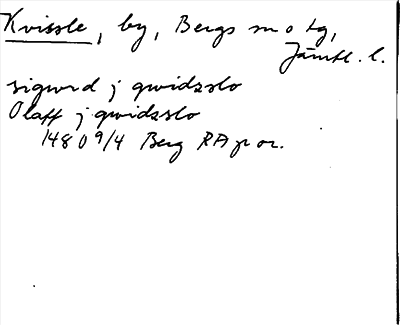 Kvissle, by, Bergs sn o tg,
Jämtl. l.
sigwrd j qwidzslo
Olaff j qwidzslo
1480 9/4 Berg RA p or.